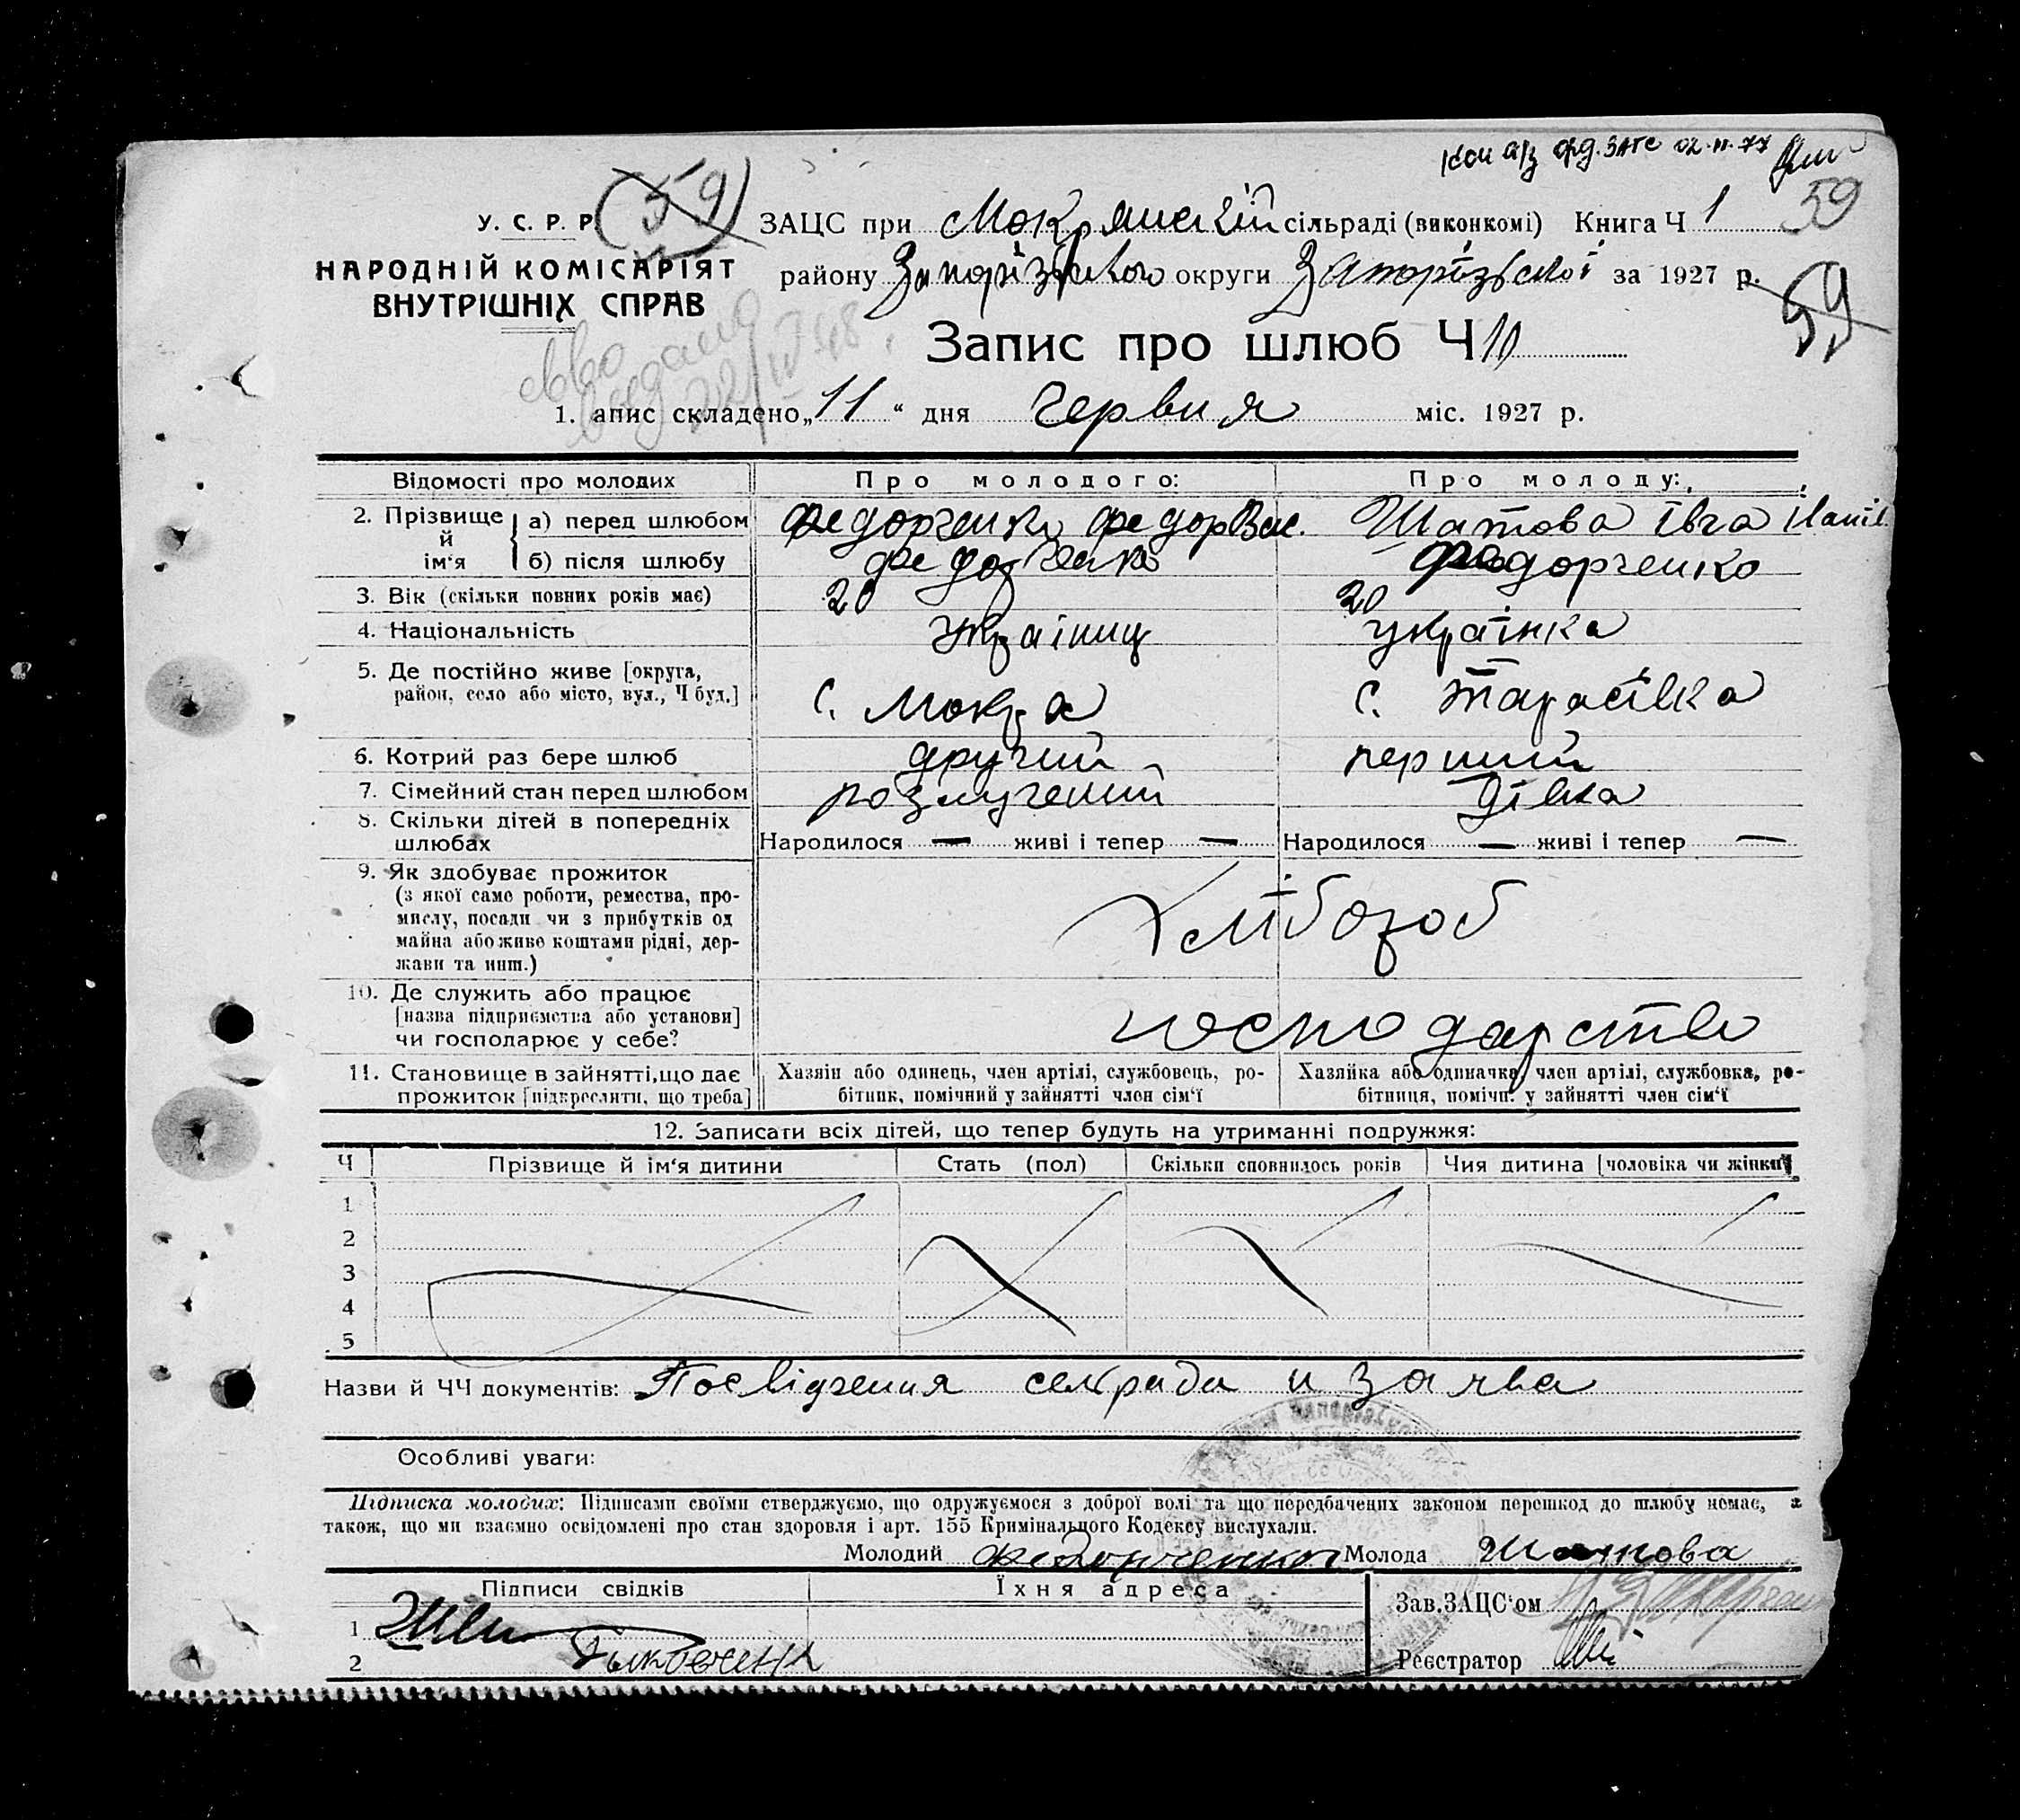 У. С. Р. Р. (59) ЗАЦС при Мокрянській сільраді (виконкомі) Книга Ч 1 59
НАРОДНІЙ КОМІСАРІЯТ району Запорізького округи Запорізької за 1927 р.
ВНУТРІШНІХ СПРАВ 59
Запис про шлюб Ч 10
1. апис складено „11“ дня червня міс. 1927 р.
Відомості про молодих Про молодого: Про молоду:
2. Прізвище й ім‘я а) перед шлюбом Федорченко Федор Вас. Шатова Івга
б) після шлюбу Федорченко Федорченко
3. Вік (скільки повних років має) 20 20
4. Національність Українець українка
5. Де постійно живе [округа,
район, село або місто, вул., Ч буд.] с. Мокра с. Тарасівка
6. Котрий раз бере шлюб другий перший
7. Сімейний стан перед шлюбом розлучений дівка
8. Скільки дітей в попередніх
шлюбах Народилося — живі і тепер — Народилося — живі і тепер —
9. Як здобуває прожиток
(з якої саме роботи, ремества, про-
мислу, посади чи з прибутків од
майна або живе коштами рідні, дер-
жави та инш.) Хлібороб
10. Де служить або працює
[назва підприємства або установи]
чи господарює у себе? господарство
11. Становище в зайнятті, що дає Хазяїн або одинець, член артілі, службовець, ро- Хазяйка або одиначка, член артілі, службовка, ро-
прожиток [підкреслити, що треба] бітник, помічний у зайнятті член сім‘ї бітниця, помічн. у зайнятті член сім‘ї
12. Записати всіх дітей, що тепер будуть на утриманні подружжя:
Ч Прізвище й ім‘я дитини Стать (пол) Скільки сповнилось років Чия дитина [чоловіка чи жінки]
1
2
3
4
5
Назви й ЧЧ документів: Посвідчення сельради и заява
Особливі уваги:
Підписка молодих: Підписами своїми стверджуємо, що одружуємося з доброї волі та що передбачених законом перешкод до шлюбу немає, а
також, що ми взаємно освідомлені про стан здоровля і арт. 155 Кримінального Кодексу вислухали.
Молодий Федорченко Молода Шатова
Підписи свідків Їхня адреса Зав. ЗАЦС‘ом
1
2 Реєстратор